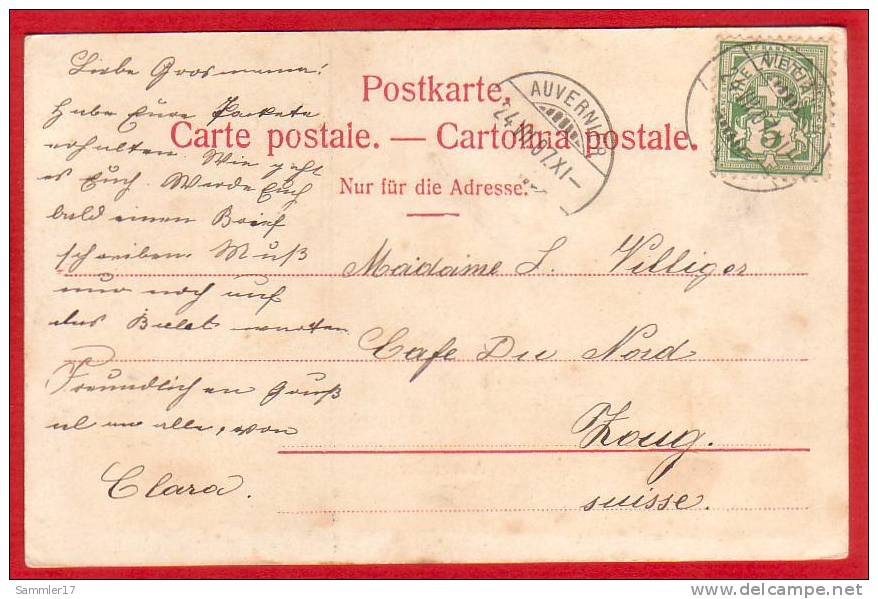 Liebe Grosmama!
Habe Eure Pakete
erhalten. Wie geht
es Euch. Werde Euch
bald einen Brief
schreiben. Muß
nur noch auf
das warten
Freundlichen Gruß
alle, von
Clara.
Postkarte.
Carte postale. — Cartolina postale.
Nur für die Adresse.
AUVERNIER
24.VII.07.XI–
HELVETIA
5
Madame L. Villiger
Cafe Du Nord
Zoug.
suisse.
Sammler17
delcampe.net